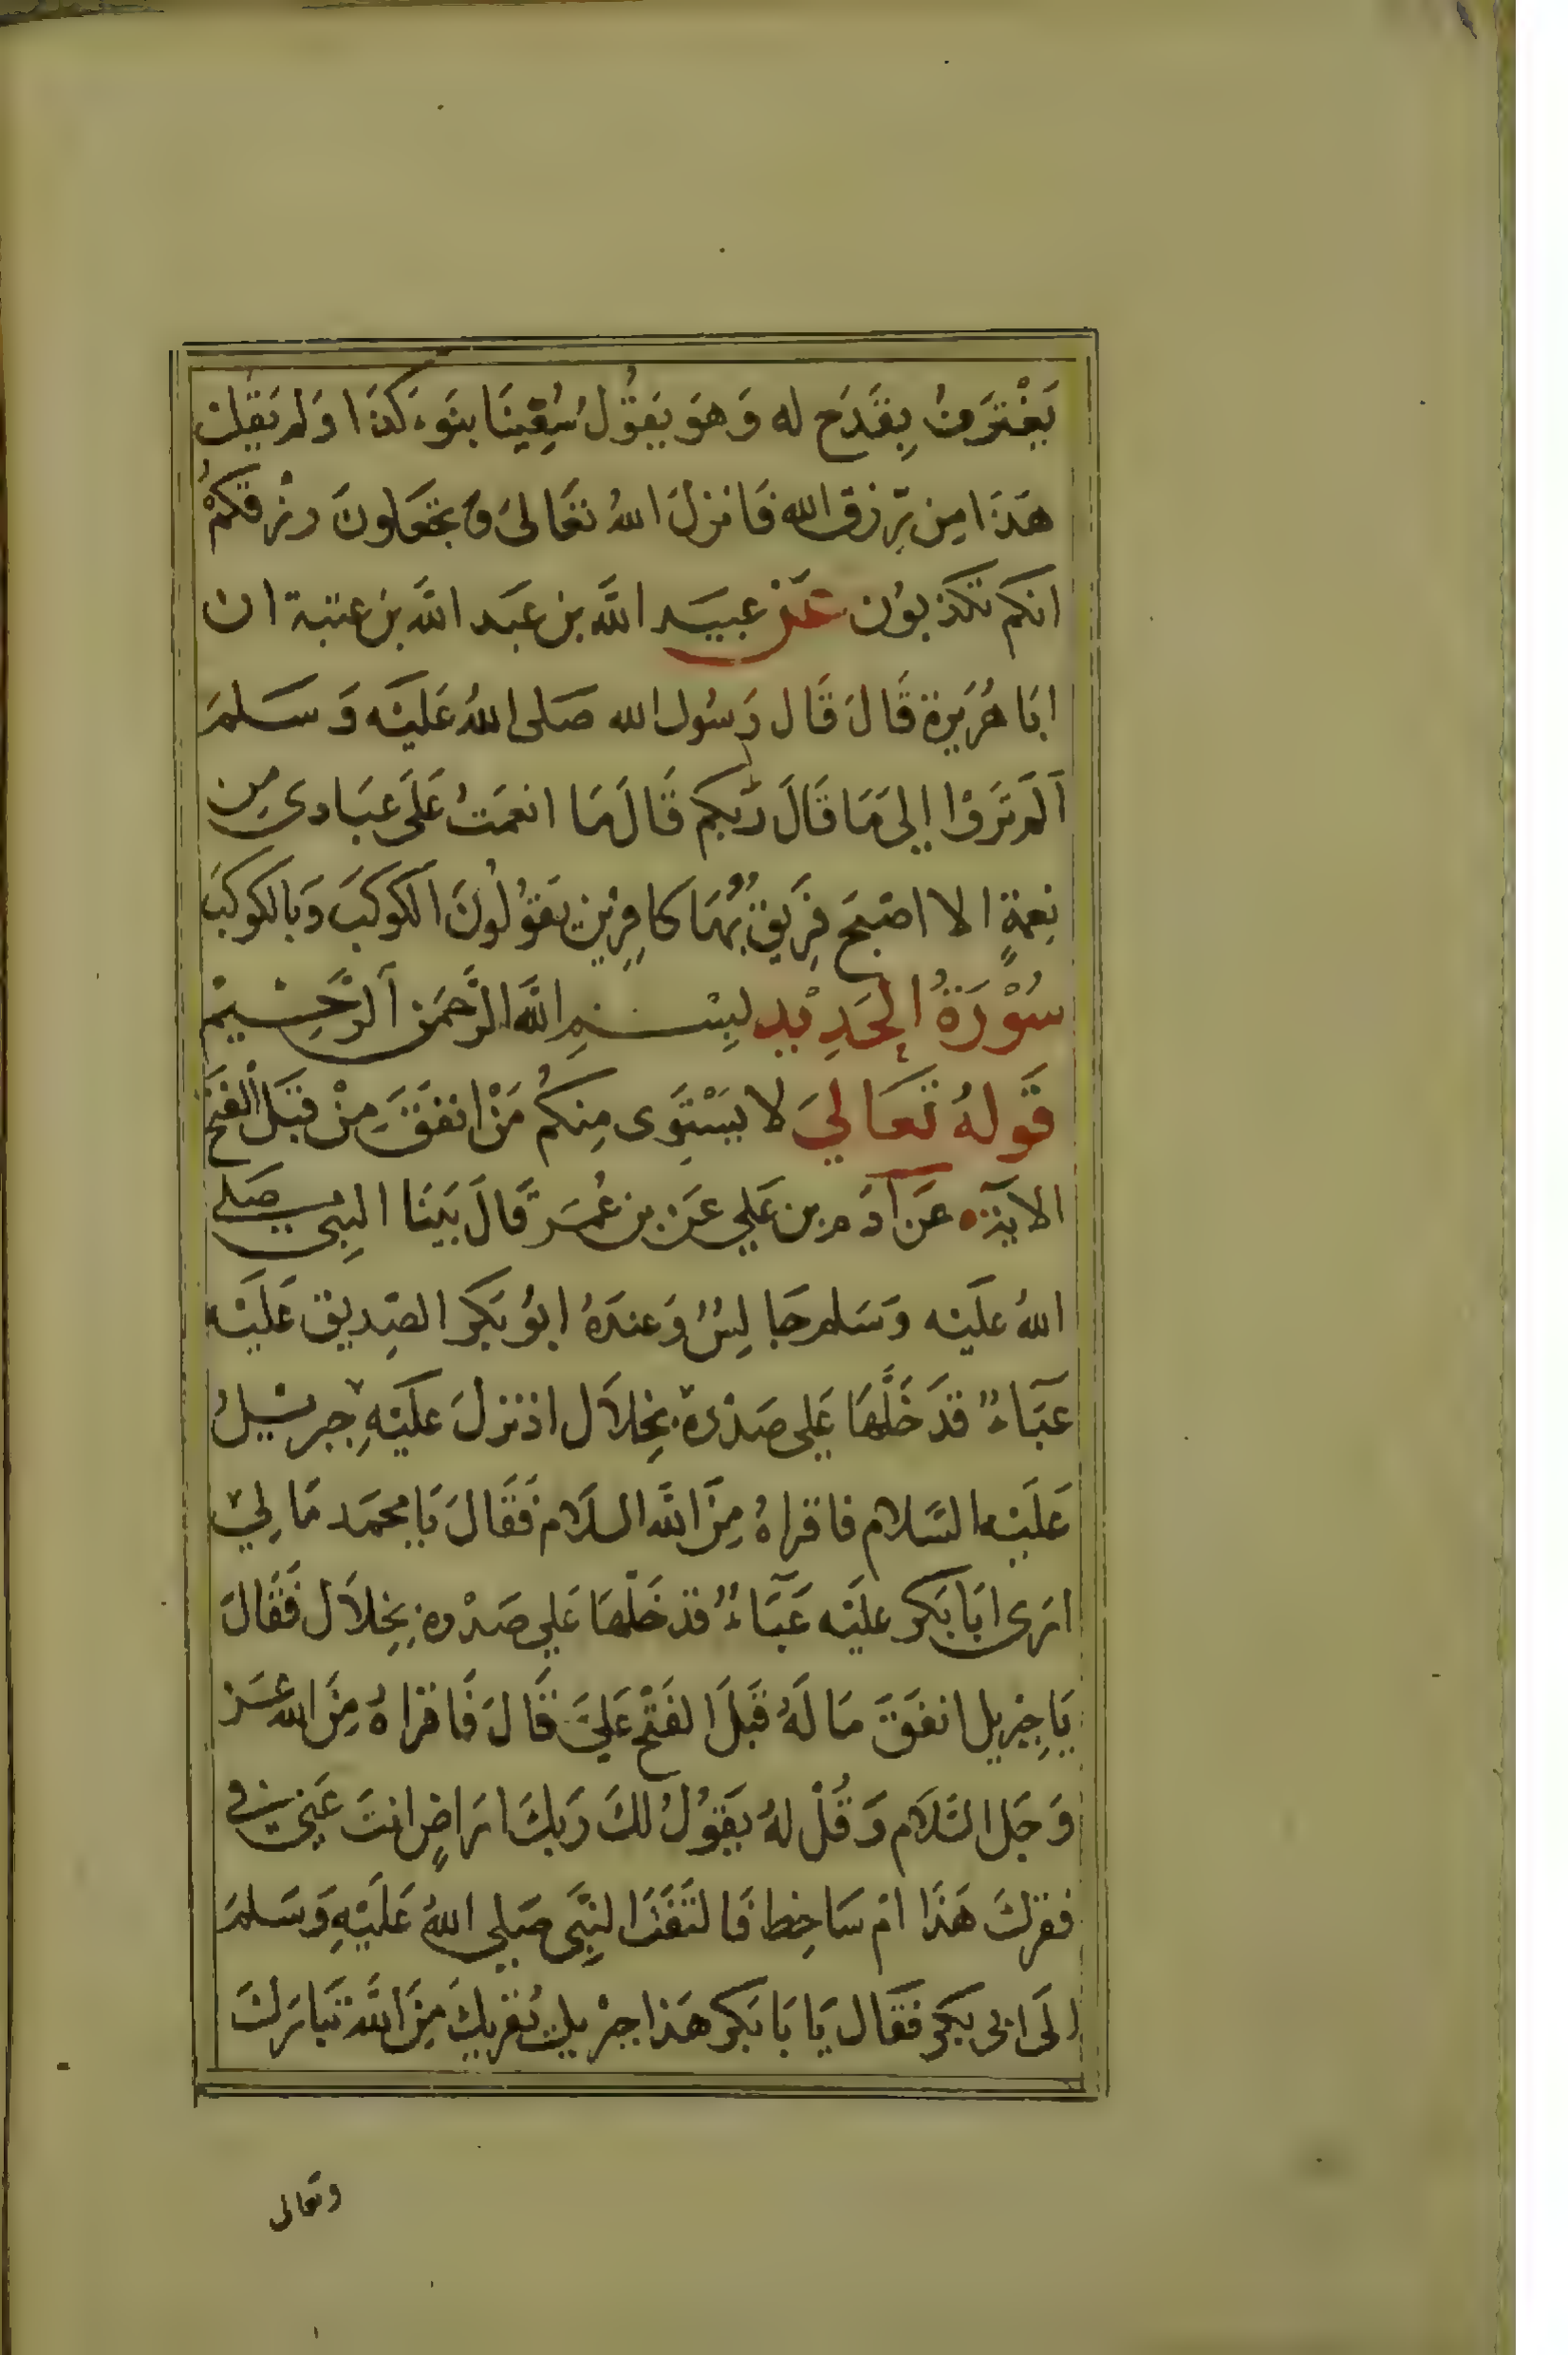 يَغْتَرِفُ بِقَدَح له وَهوَ يَقُولُ سُقِينَا بنَوءَ كَذَا وَلم يَقل
هَذَا مِن رِزق الله فَانزلَ اللهُ تعَالىَ وَتجعَلونَ رزْقكمْ
انكم تكذبوُن عَن عبيَد اللَّه بن عَبَد اللَّه بن عتبَة ان
ابَا هُرَيرة قَالَ قَال رَسُول الله صَلى اللهُ عَليَه وَ سَلمَ
اَلمَ تَرَوْا إلى مَا قَالَ رَبكم قَالَ مَا انعمَتُ عَلَى عبَادى مِن
نِعمَةٍ الا اصْبَحَ فِرَيق بُهَا كافِرِيْن يَقوُلُونَ الكَوكَبَ وَبالكوكبَ
سُوْرَةُ الحَدِيْد بِسْمِ اللَّه الرَّحمَن اَلرَّحِيْم
قَولهُ تَعَالىَ لا يسَتَوِى مِنكُم مَنْ انفقَ مِنْ قبَل الفَتح
الاَية عَن آدَم بن عَلي عَن بن عُمَر قَالَ بَينَا النبِى صَلى
اللهُ عَليَه وَسَلم جَالِسٌ وَعندَهُ ابوُ بَكر الصِديق عَليَه
عَبَاءٌ قدَ خَلَّهَا عَلى صَدْرهِ بِخِلاَل اذ نزلَ عَليَهِ جبرئيلُ
عَلَيْه السَّلام فاقراهُ مِنَ اللَّه السلاَم فَقَالَ يَا محمَد مَا لِي
ارَى ابَا بَكر عليَه عَبَاءٌ قد خَلَّهَا عَلي صَدْره بِخِلاَل فَقَالَ
يَا جِبْريل انفَقَ مَا لَهُ قَبَلَ الفَتْح عَليَ قَالَ فَاقراهُ مِنَ الله عَز
وَجَل السَّلاَم وَقُلْ لهُ يَقوُلُ لكَ رَبكَ ارَاضٍ انتَ عَنِّى في
فقركَ هَذَا امْ سَاخِط فَالتَفَتَ النبِى صَلى اللهُ عَلَيْهِ وَسَلمَ
إلَى ابى بكر فَقَال يَا بَا بَكر هَذا جبْريل يُقريكَ مِنَ اللَّه تَبَارَكَ
وتعالى